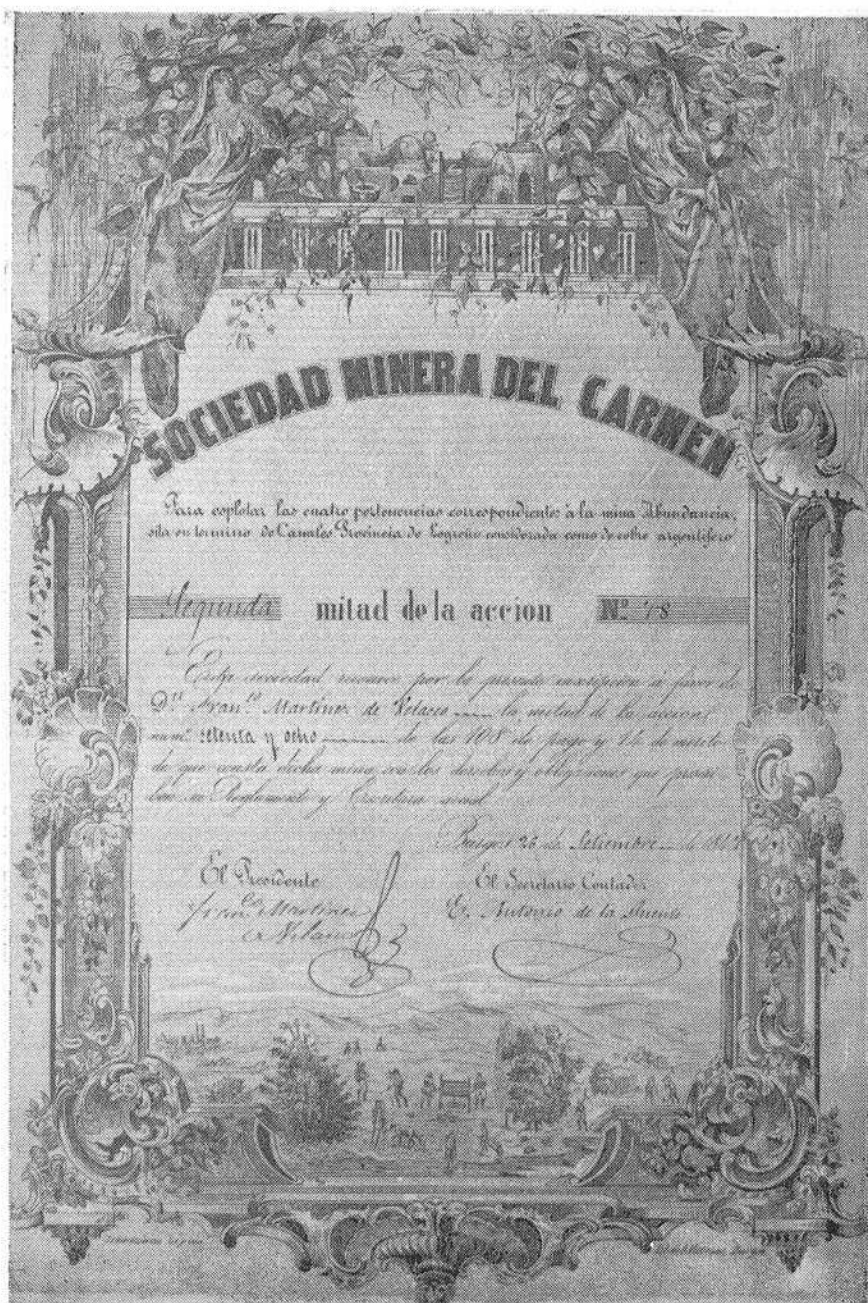 SOCIEDAD MINERA DEL CARMEN
Para esplotar las cuatro pertenencias correspondientes à la mina Abundancia,
sita en termino de Canales Provincia de Logroño considerada como de cobre argentifero
Segunda mitad de la accion Nº 78
Esta sociedad reconoce por la presente inscripcion á favor de
Dⁿ Franᶜᵒ Martinez de Velasco la mitad de la accion
numº setenta y ocho de las 108 de pago y 12 de
de que consta dicha mina con los derechos y obligaciones que prescri
ben su Reglamento y Escritura social
Burgos 26 de Setiembre de
El Presidente El Secretario Contador
Franᶜᵒ Martinez Antonio de la Fuente
Velasco